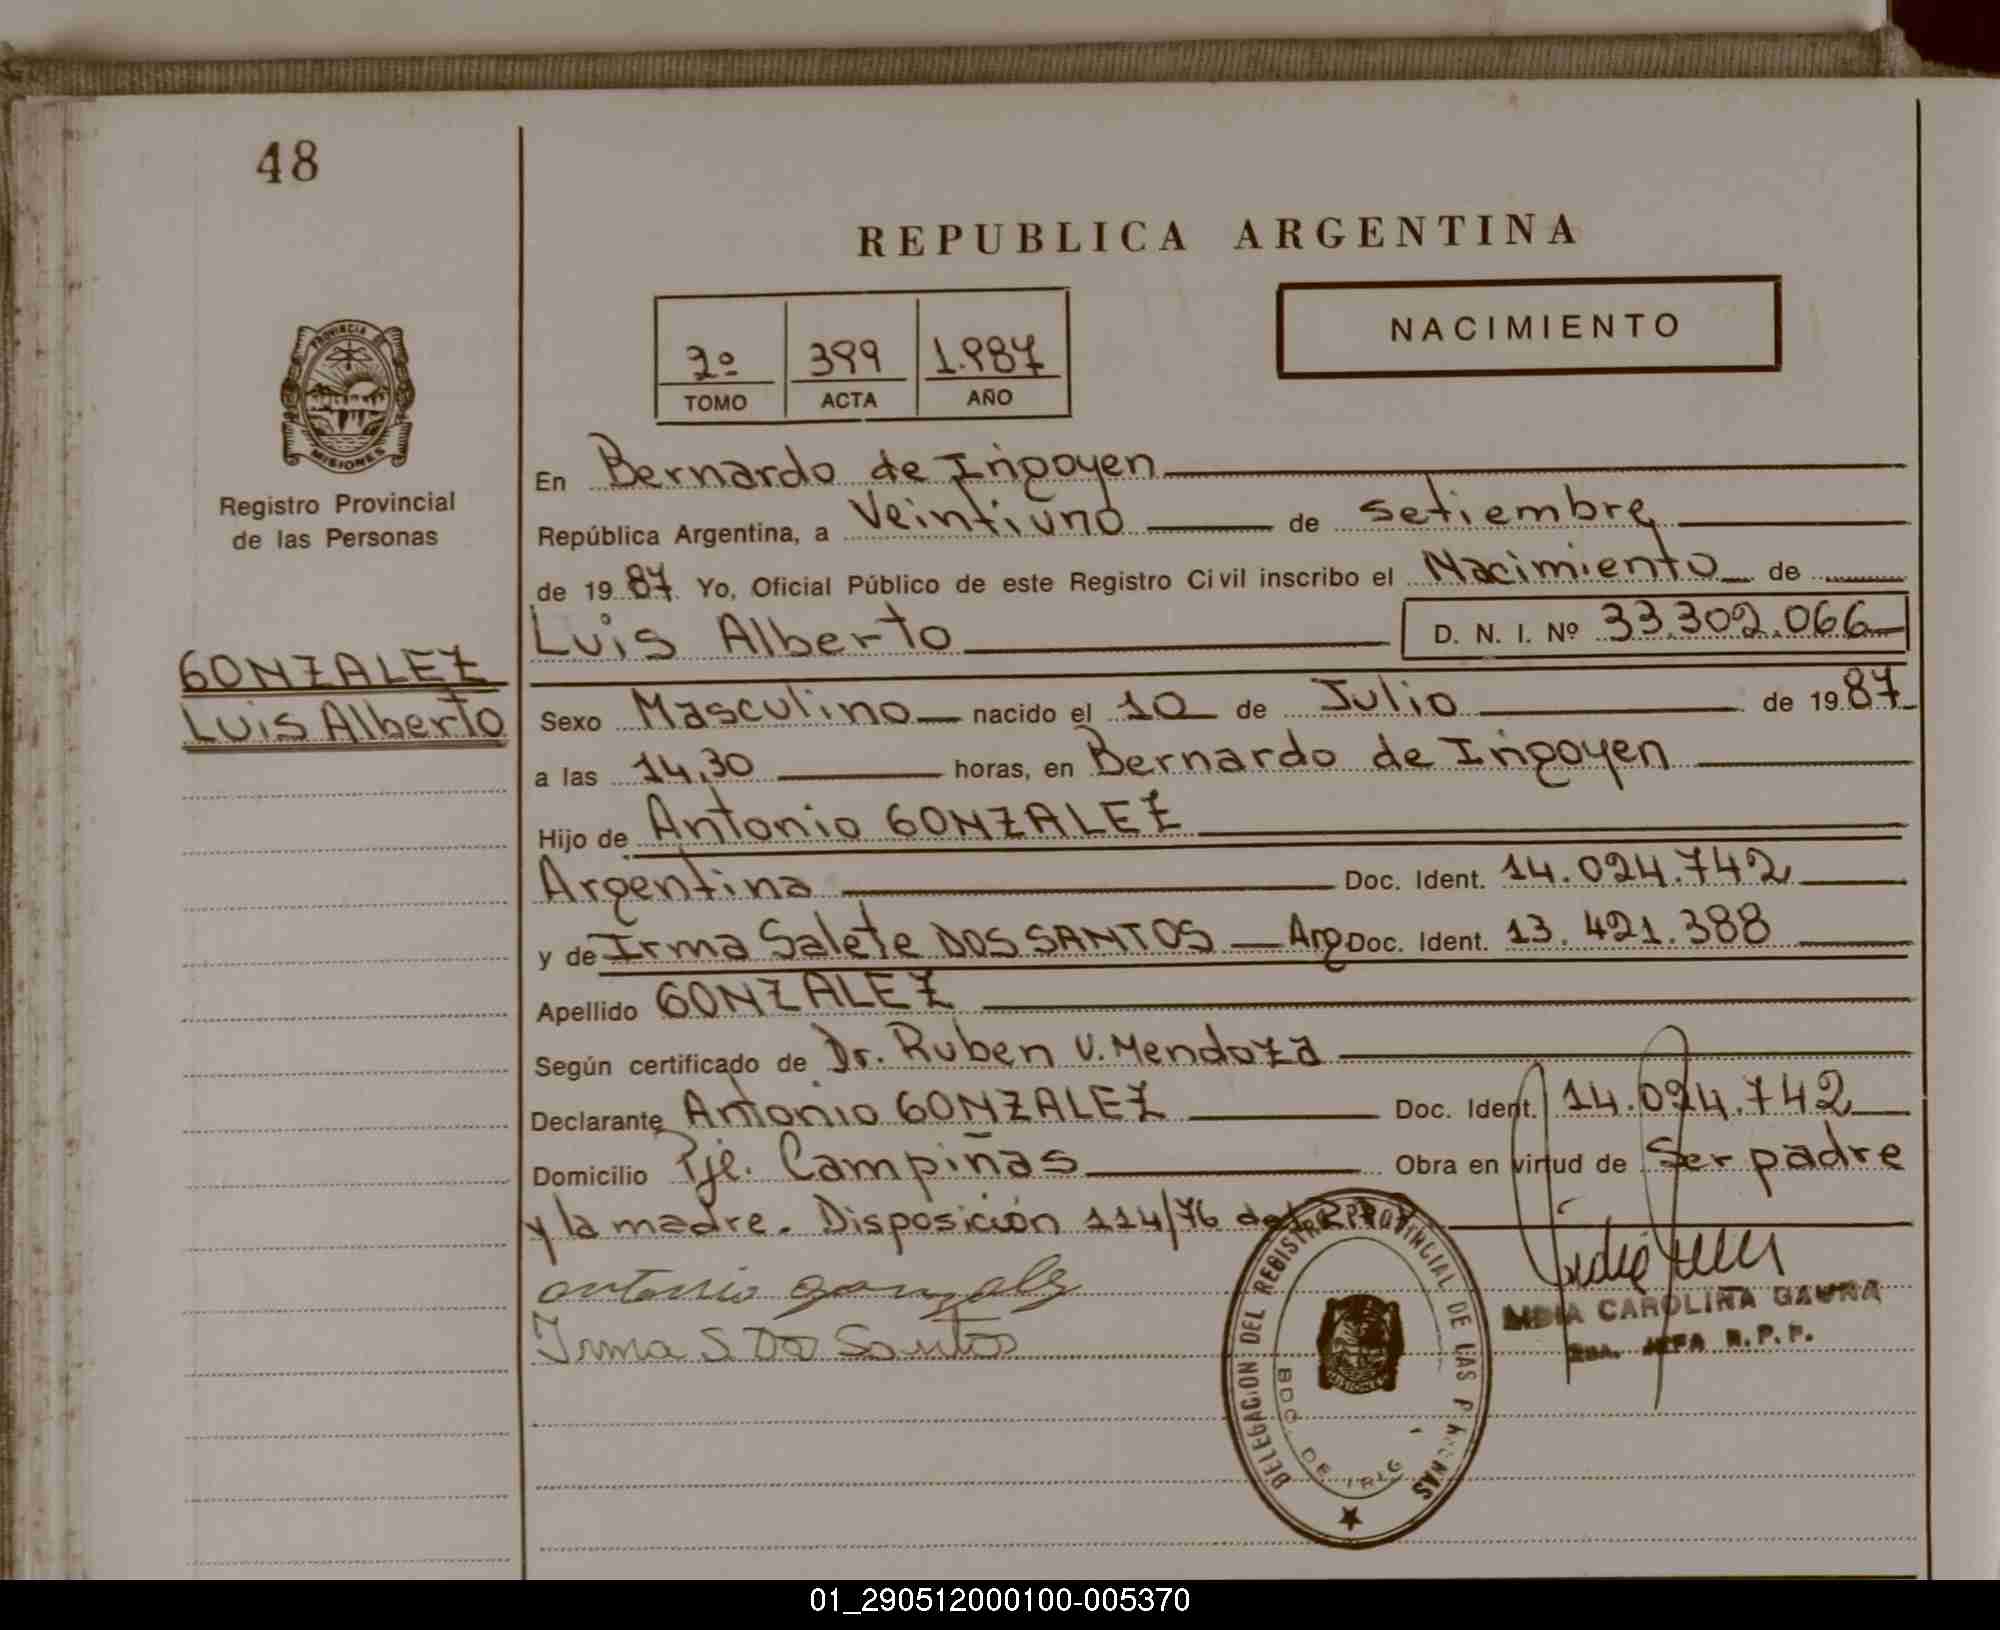 48
REPUBLICA ARGENTINA
NACIMIENTO
2º 399 1.987
TOMO ACTA AÑO
PROVINCIA DE
MISIONES
Registro Provincial
de las Personas
En Bernardo de Irigoyen
República Argentina, a Veintiuno de setiembre
de 1987 Yo, Oficial Público de este Registro Civil inscribo el Nacimiento de
Luis Alberto D. N. I. Nº 33.302.066
GONZALEZ
Luis Alberto
Sexo Masculino nacido el 10 de Julio de 1987
a las 14,30 horas, en Bernardo de Irigoyen
Hijo de Antonio GONZALEZ
Argentina Doc. Ident. 14.024.742
y de Irma Salete DOS SANTOS Arg Doc. Ident. 13.421.388
Apellido GONZALEZ
Según certificado de Dr. Ruben V. Mendoza
Declarante Antonio GONZALEZ Doc. Ident. 14.024.742
Domicilio Pje. Campiñas Obra en virtud de Ser padre
y la madre. Disposición 114/76 del
antonio gonzalez
Irma S Do Santos
LIDIA CAROLINA GAUNA
2da. JEFA R. P. P.
DELEGACION DEL REGISTRO PROVINCIAL DE LAS PERSONAS
BDO. DE IRIG
MISIONES
01_290512000100-005370